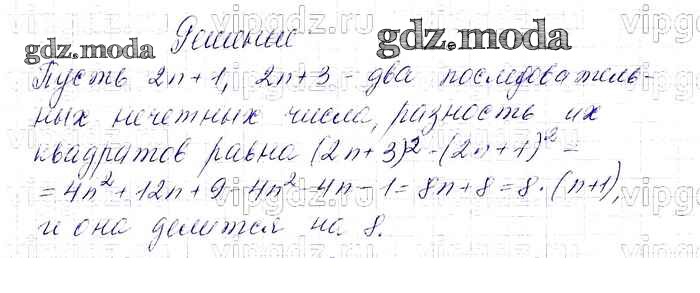 Решение
gdz.moda gdz.moda
Пусть 2n+1, 2n+3 - два последователь-
ных нечетных числа, разность их
квадратов равна (2n+3)² - (2n+1)² =
= 4n² + 12n + 9 - 4n² - 4n - 1 = 8n + 8 = 8 · (n+1),
и она делится на 8.
vipgdz.ru